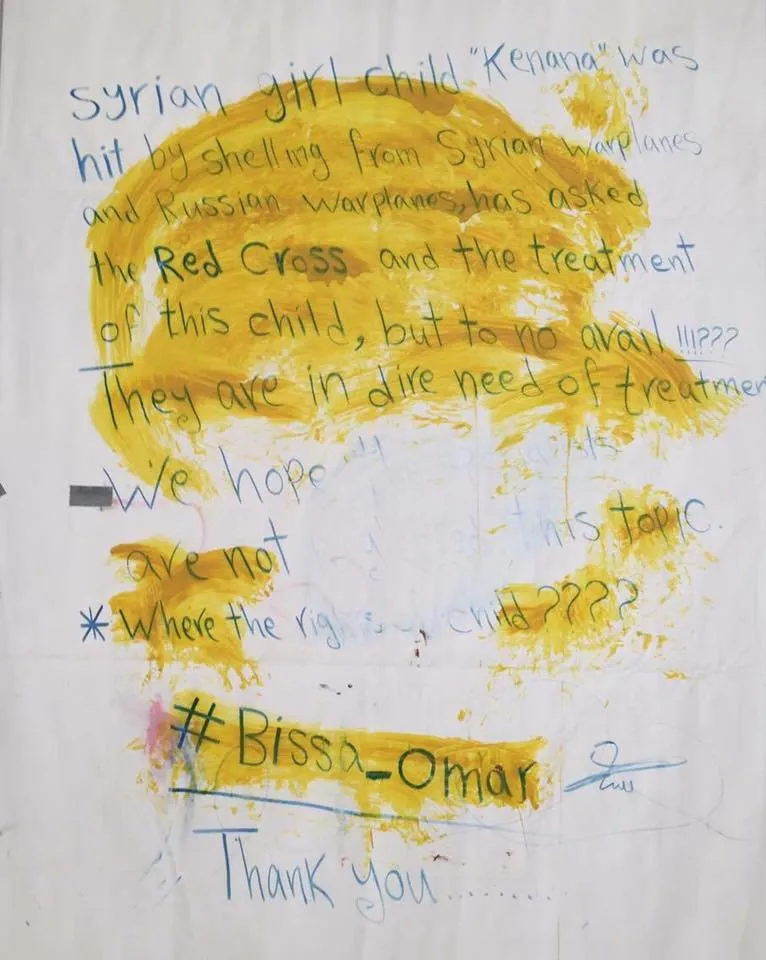 syrian girl child "Kenana" was
hit by shelling from Syrian warplanes
and Russian warplanes, has asked
the Red Cross and the treatment
of this child, but to no avail !!!???
They are in dire need of treatmen
- We hope
are not this topic.
* Where the rig child ????
# Bissa_Omar
Thank you.........